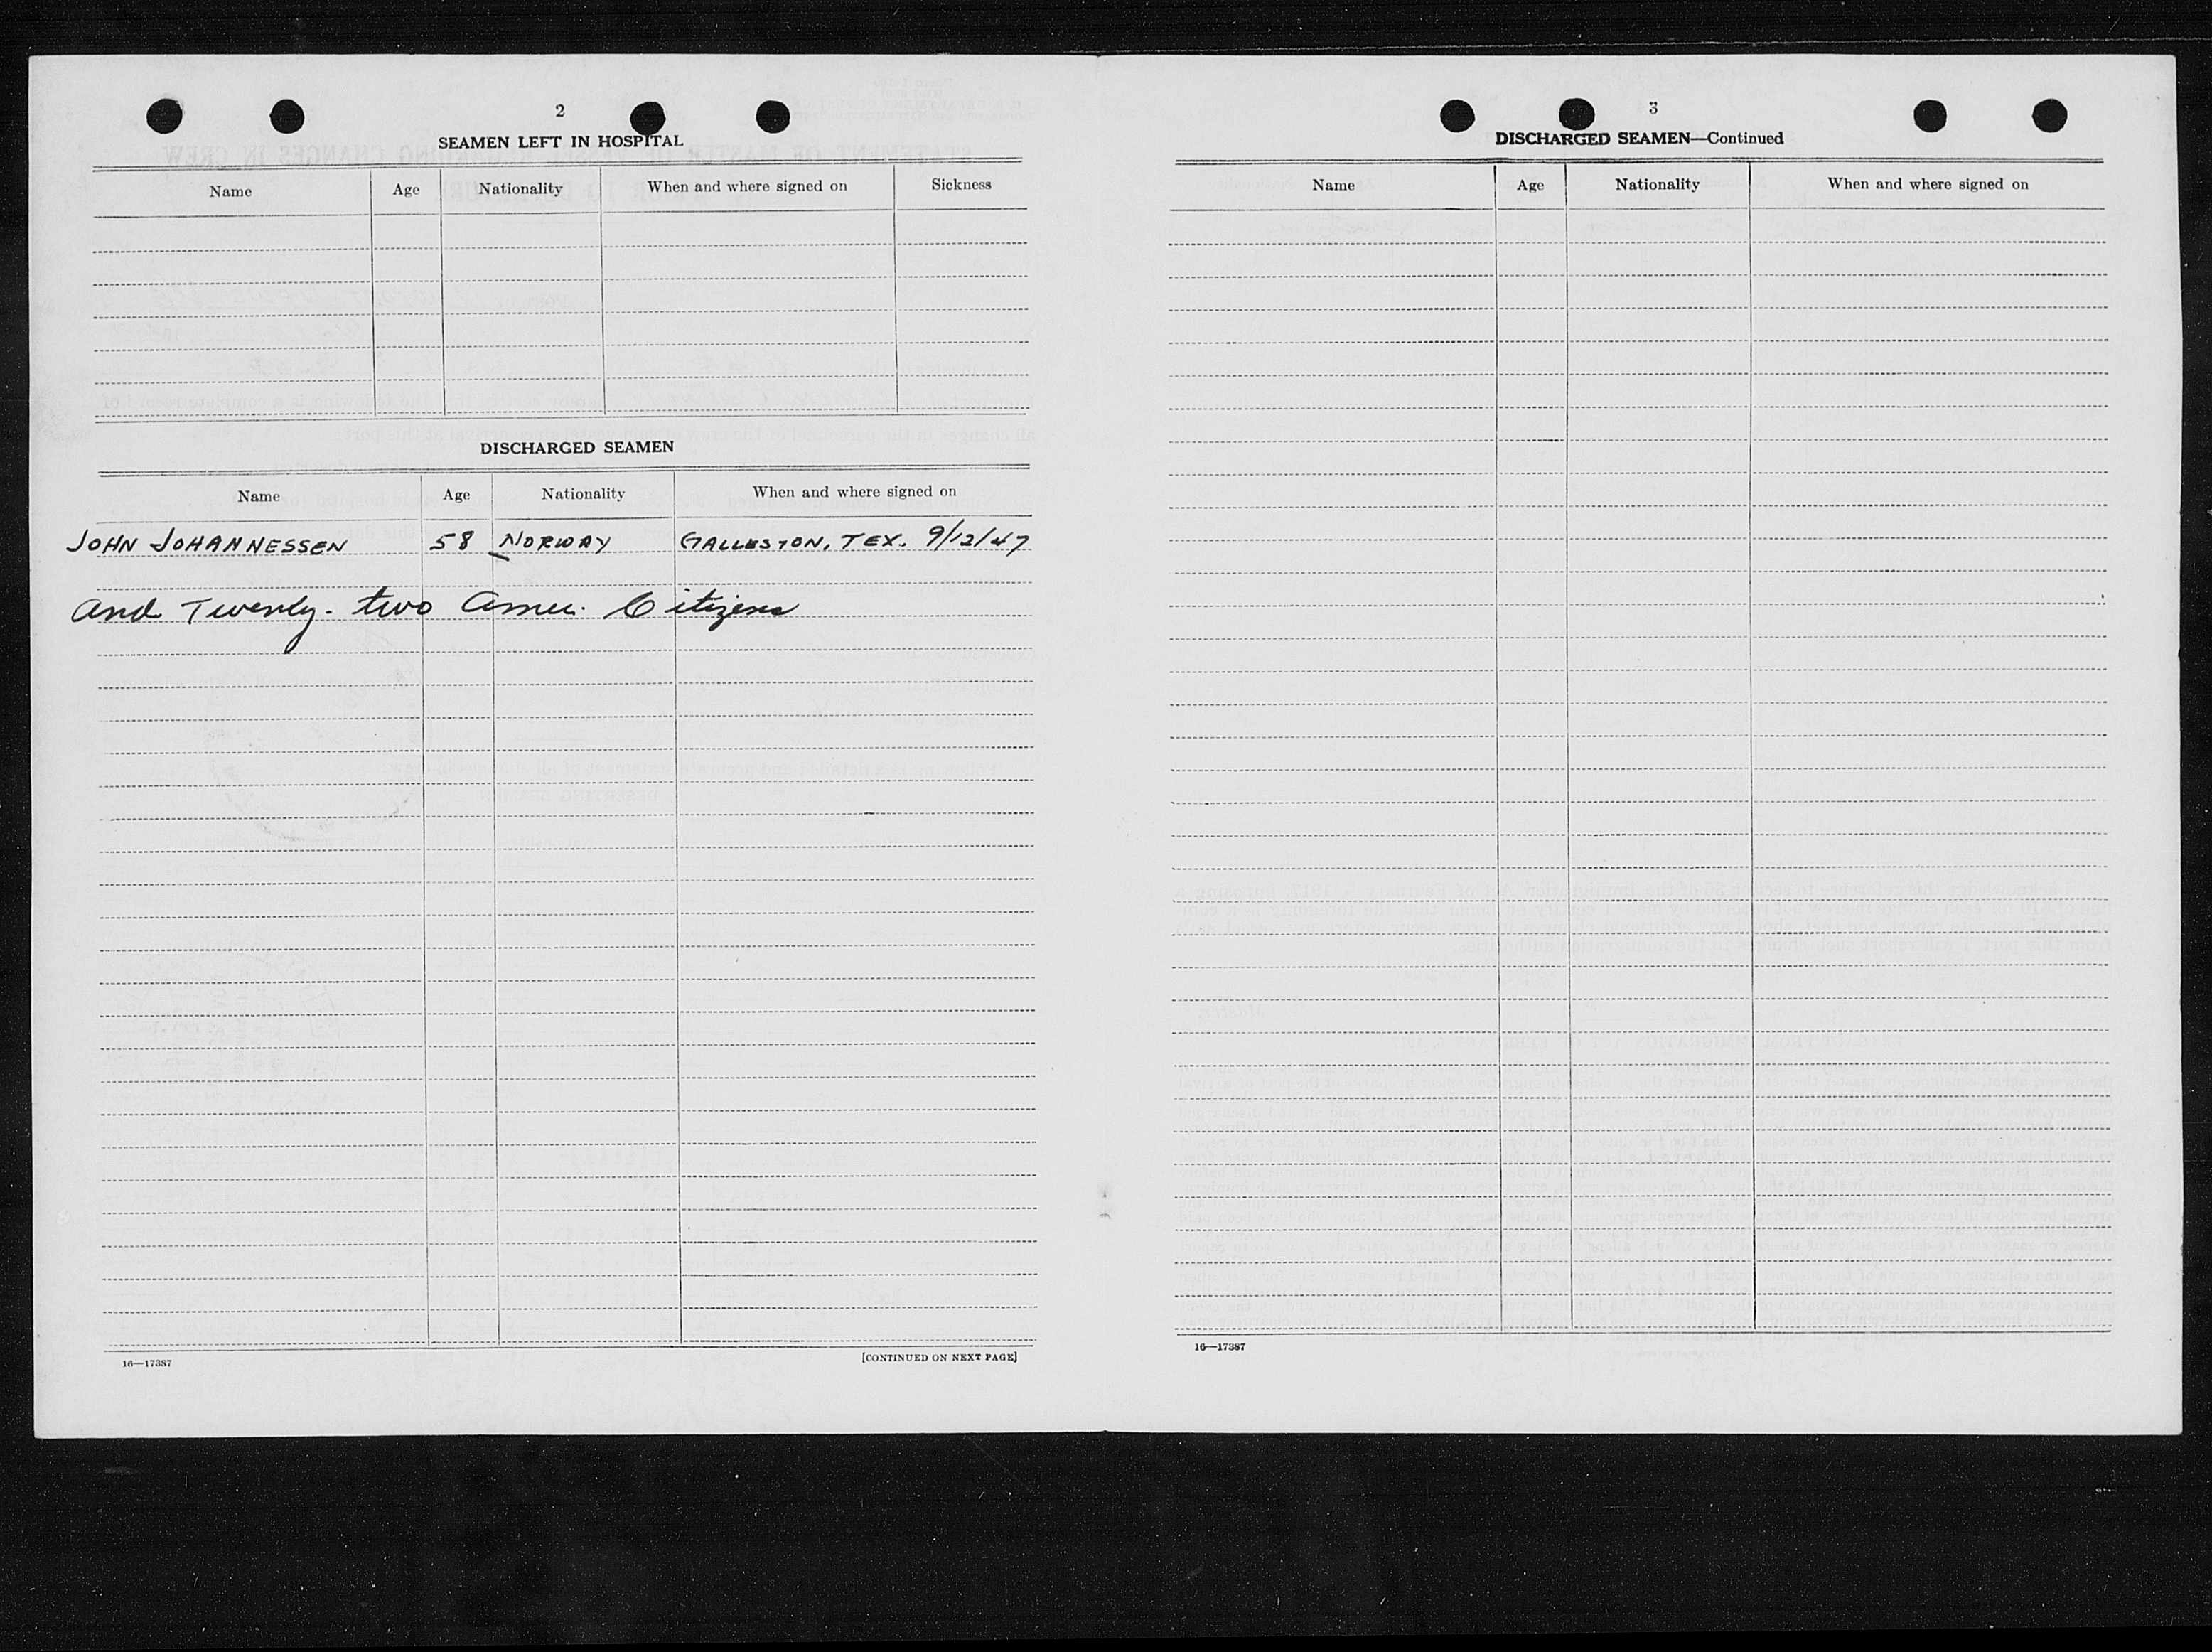 2
SEAMEN LEFT IN HOSPITAL
Name Age Nationality When and where signed on Sickness
DISCHARGED SEAMEN
Name Age Nationality When and where signed on
JOHN JOHANNESSEN 58 NORWAY GALLESTON, TEX. 9/12/47
and Twenty-two Amer. Citizens
16—17387 [CONTINUED ON NEXT PAGE]
3
DISCHARGED SEAMEN—Continued
Name Age Nationality When and where signed on
16—17387